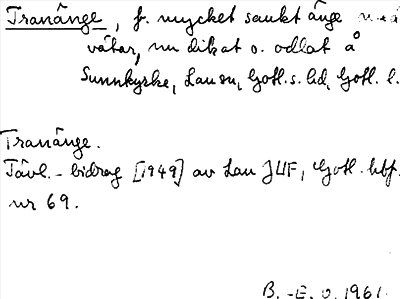 Tranänge, f. mycket sankt änge med
våtar, nu dikat o. odlat å
Sunnkyrke, Lau sn, Gotl. s. hd, Gotl. l.
Tranänge.
Tävl.-bidrag [1949] av Lau JUF, Gotl. hbf.
nr 69.
B.-E. O. 1961.